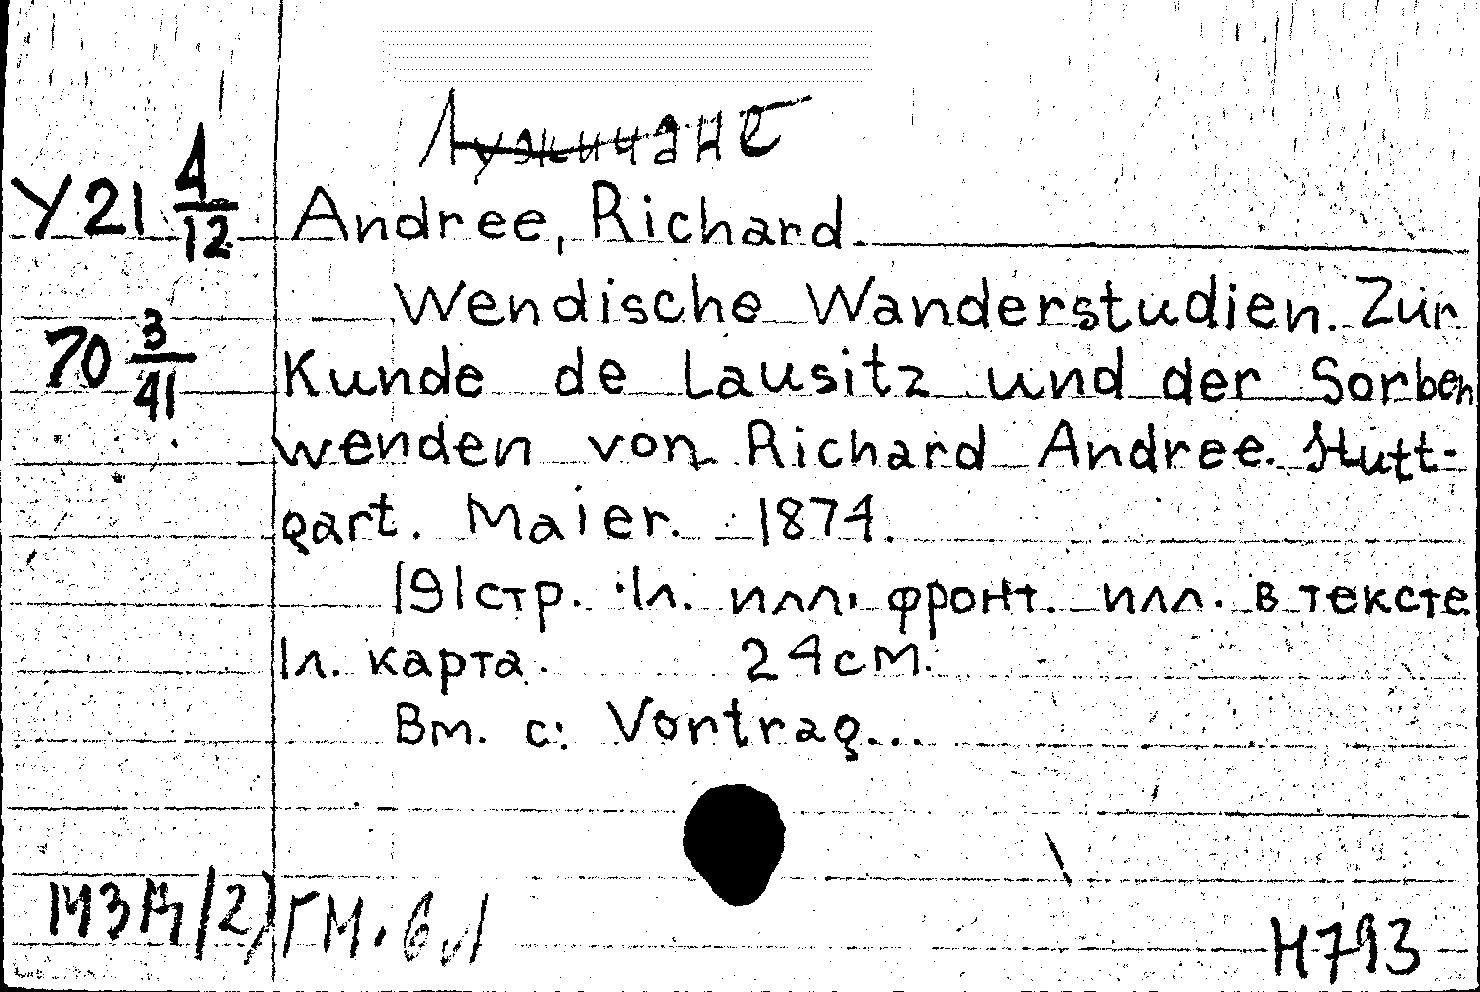 Лужичане
У 21 4/12
Andree, Richard.
Wendische Wanderstudien. Zur
70 3/41
Kunde de Lausitz und der Sorben
wenden von Richard Andree. Stutt-
gart. Maier. 1874.
191 стр. 1 л. илл. фронт. илл. в тексте
1 л. карта. 24 см.
Вм. с: Vortrag...
H793